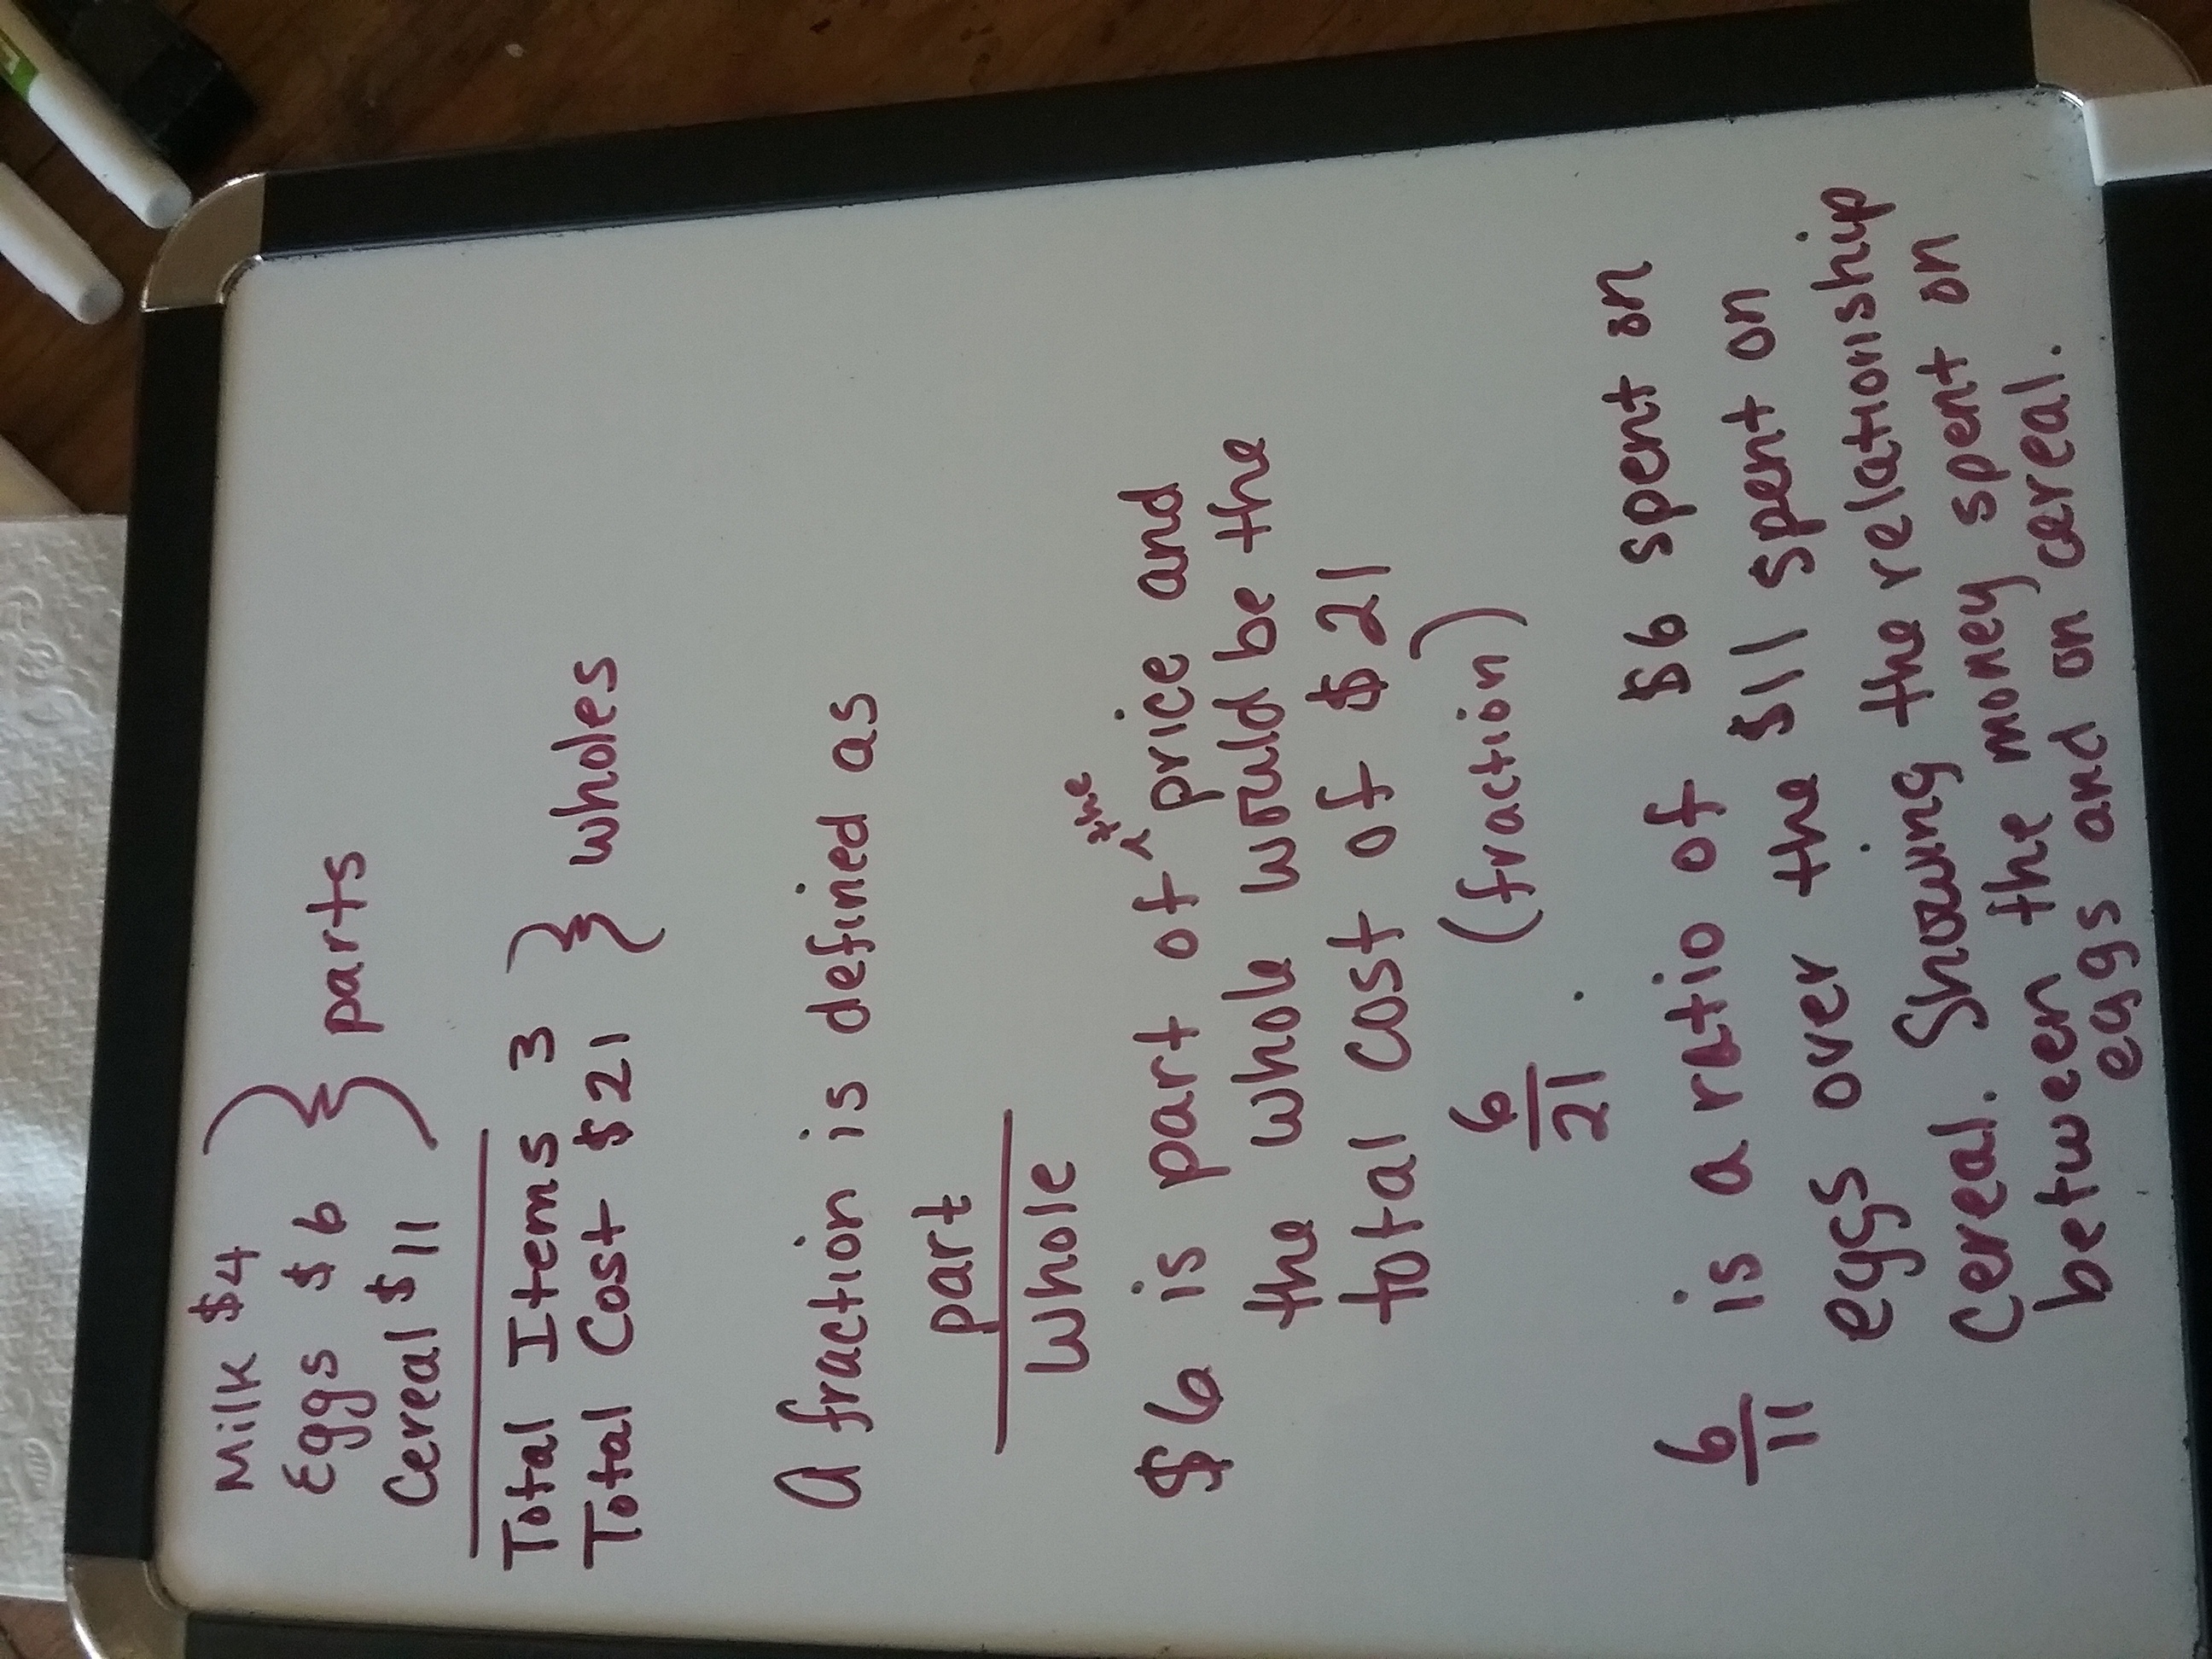 Milk $4
Eggs $6
Cereal $11
} parts
Total Items 3
Total Cost $21
} wholes
A fraction is defined as
part
whole
$6 is part of the price and
the whole would be the
total cost of $21
6/21 (fraction)
6/11 is a ratio of $6 spent on
eggs over the $11 spent on
Cereal. Showing the relationship
between the money spent on
eggs and on cereal.